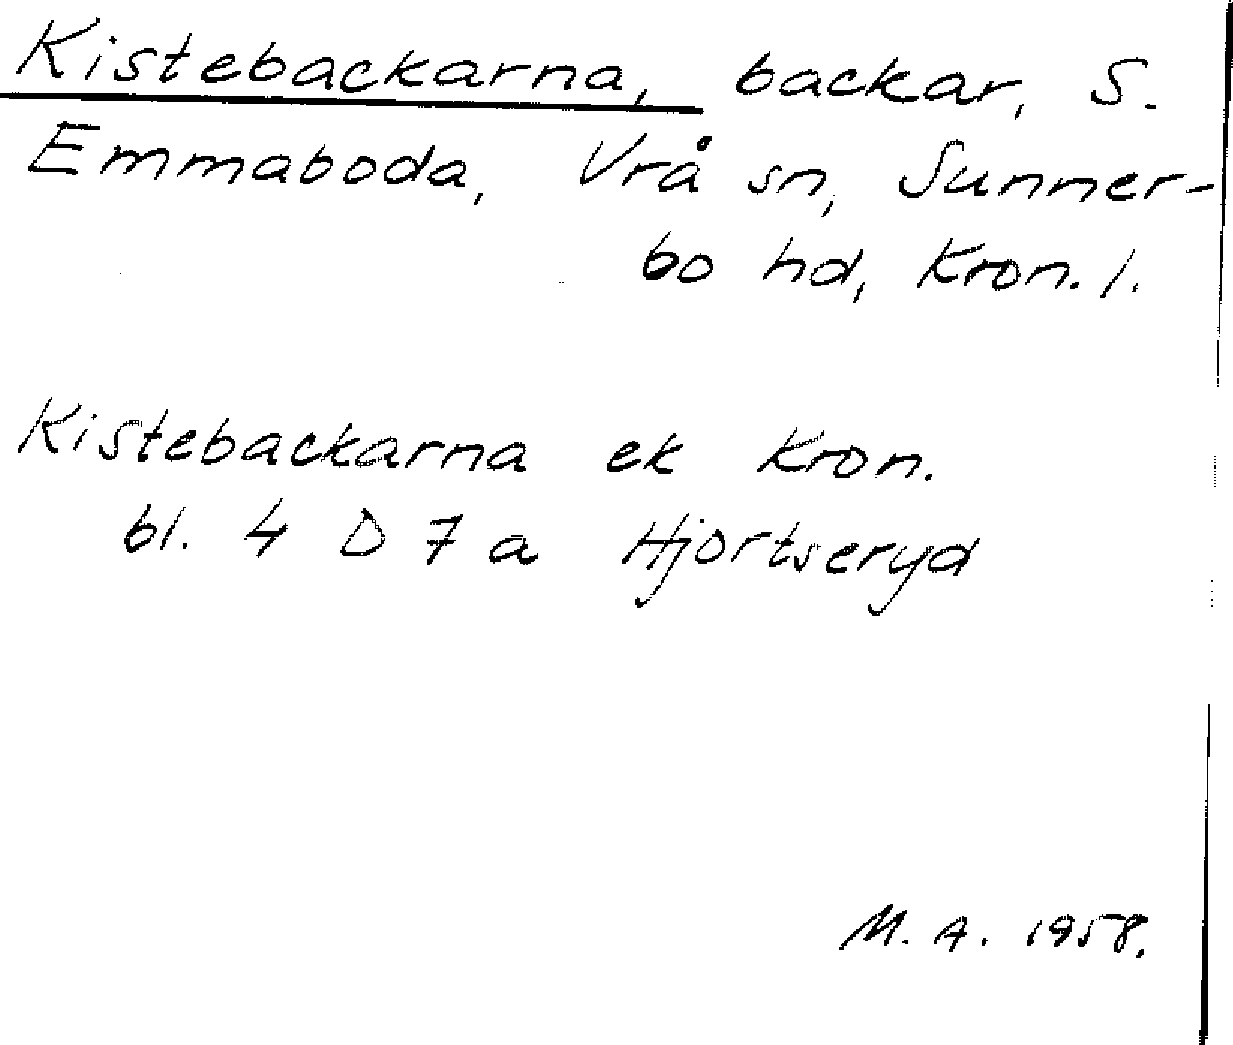 Kistebackarna, backar, S.
Emmaboda, Vrå sn, Sunner-
bo hd, Kron. l.
Kistebackarna ek Kron.
bl. 4 D 7 a Hjortseryd
M. A. 1958.